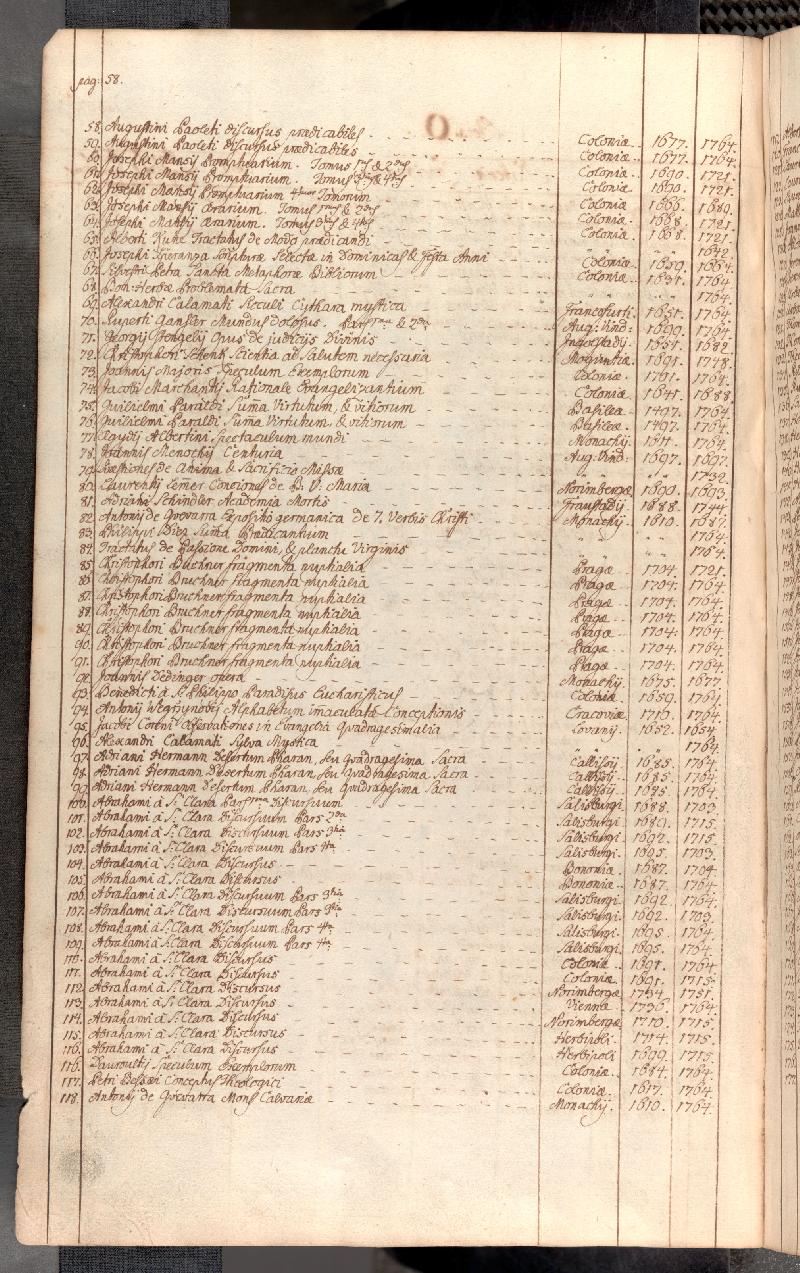 pag: 58.
58. Augustini Paoleti discursus prædicabiles Coloniæ 1677. 1764.
59. Augustini Paoleti discursus prædicabiles Coloniæ 1677. 1764.
60. Josephi Mansij Promptuarium. Tomus 1us & 2dus Coloniæ 1690. 1721.
61. Josephi Mansij Promptuarium. Tomus 3us & 4tus Coloniæ 1690. 1721.
62. Josephi Mansij Promptuarium 4tuor Tomorum Coloniæ 1666. 1689.
63. Josephi Mansij Ærarium. Tomus 1mus & 2dus Coloniæ 1668. 1721.
64. Josephi Mansij Ærarium. Tomus 3us & 4tus Coloniæ 1668. 1721.
65. Alberti Kuhe Tractatus de Modo prædicandi " " " " 1642
66. Josephi Speranza Scripturæ Selectæ in Dominicas & Festa Anni Coloniæ 1659. 1664.
67. Silvestri Petra Sancta Metaphoræ Bibliorum Coloniæ 1634. 1764.
68. Joh: Herbæ Problemata Sacra " " " " 1764.
69. Alexandri Calamati Seculi Cythara mystica Francofurti. 1651. 1764.
70. Ruperti Gansler Mundus dolosus. Pars 1ma & 2da Aug: Vind: 1699. 1764.
71. Georgij Stengelij Opus de judicijs Divinis Ingolstadij 1651. 1682.
72. Christophori Schenk Scientia ad Salutem necessaria Moguntiæ. 1691. 1748.
73. Joannis Majoris Speculum Exemplorum Coloniæ 1701. 1764.
74. Jacobi Marchantij Rationale Evangelizantium Coloniæ 1641. 1688.
75. Guilielmi Paraldi Suma Virtutum, & vitiorum Basileæ 1497. 1764.
76. Guilielmi Paraldi Suma Virtutum, & vitiorum Basileæ 1497. 1764.
77. Ægydij Albertini Spectaculum mundi Monachij 1611. 1764.
78. Joannis Menochij Centuria Aug: Vind: 1697. 1697.
79. Quæstiones de Anima & Sacrificio Missæ " " " " 1732.
80. Laurentij Lemer Conciones de B: V: Maria Norimbergæ 1690. 1693.
81. Adriani Schindler Academia Mortis Fraustadij 1688. 1744.
82. Antonij de Gvevara Expositio germanica de 7. Verbis Christi Monachij 1610. 1687.
83. Philippi Diez Suma Prædicantium " " " " 1764.
84. Tractatus de Passione Domini, & planctu Virginis " " " " 1764.
85. Christophori Bruchner fragmenta nuphalia Pragæ 1704. 1721.
86. Christophori Bruchner fragmenta nuphalia Pragæ 1704. 1764.
87. Christophori Bruchner fragmenta nuphalia Pragæ 1704. 1764.
88. Christophori Bruchner fragmenta nuphalia Pragæ 1704. 1764.
89. Christophori Bruchner fragmenta nuphalia Pragæ 1704. 1764.
90. Christophori Bruchner fragmenta nuphalia Pragæ 1704. 1764.
91. Christophori Bruchner fragmenta nuphalia Pragæ 1704. 1764.
92. Joannis Dedinger opera Monachij 1675. 1677
93. Benedicti à S: Philippo Paradisus Eucharisticus Coloniæ 1659. 1764.
94. Antonij Wegrzynovej Alphabetum imaculatæ Conceptionis Cracoviæ 1710. 1764.
95. Jacobi Coreni Observationes in Evangelia Quadragesimalia Lovanij 1652. 1654.
96. Alexandri Calamati Sylva Mystica " " " " 1764.
97. Adriani Hermann Desertum Pharan, seu Quadragesima Sacra Callisij 1685. 1764.
98. Adriani Hermann Desertum Pharan, seu Quadragesima Sacra Callisij 1685. 1764.
99. Adriani Hermann Desertum Pharan, seu Quadragesima Sacra Callisij 1685. 1764.
100. Abrahami à S: Clara Pars 1ma Discursuum Salisburgi 1688. 1703.
101. Abrahami à S: Clara Discursuum Pars 2da Salisburgi 1689. 1715.
102. Abrahami à S: Clara Discursuum Pars 3tia Salisburgi 1692. 1715.
103. Abrahami à S: Clara Discursuum Pars 4ta Salisburgi. 1695. 1703.
104. Abrahami à S: Clara Discursus Bononiæ 1687. 1704.
105. Abrahami à S: Clara Discursus Bononiæ 1687. 1764.
106. Abrahami à S: Clara Discursuum Pars 3tia Salisburgi 1692. 1764
107. Abrahami à S: Clara Discursuum Pars 3tia Salisburgi 1692. 1703.
108. Abrahami à S: Clara Discursuum Pars 4ta Salisburgi. 1695. 1764
109. Abrahami à S: Clara Discursuum Pars 4ta Salisburgi 1695. 1764.
110. Abrahami à S: Clara Discursus Coloniæ 1691. 1764.
111. Abrahami à S: Clara Discursus Coloniæ 1691. 1715.
112. Abrahami à S: Clara Discursus Norimbergæ 1734 1751.
113. Abrahami à S: Clara Discursus Viennæ 1736. 1764.
114. Abrahami à S: Clara Discursus Norimbergæ 1710. 1715.
115. Abrahami à S: Clara Discursus Herbipoli 1714. 1715.
116. Abrahami à S: Clara Discursus Herbipoli 1699. 1715.
116. Dauroultij Speculum Exemplorum Coloniæ 1684. 1764.
117. Petri Bessæi Conceptus Theologici Coloniæ 1617. 1764.
118. Antonij de Gvevarra Mons Calvariæ Monachij 1610. 1764.